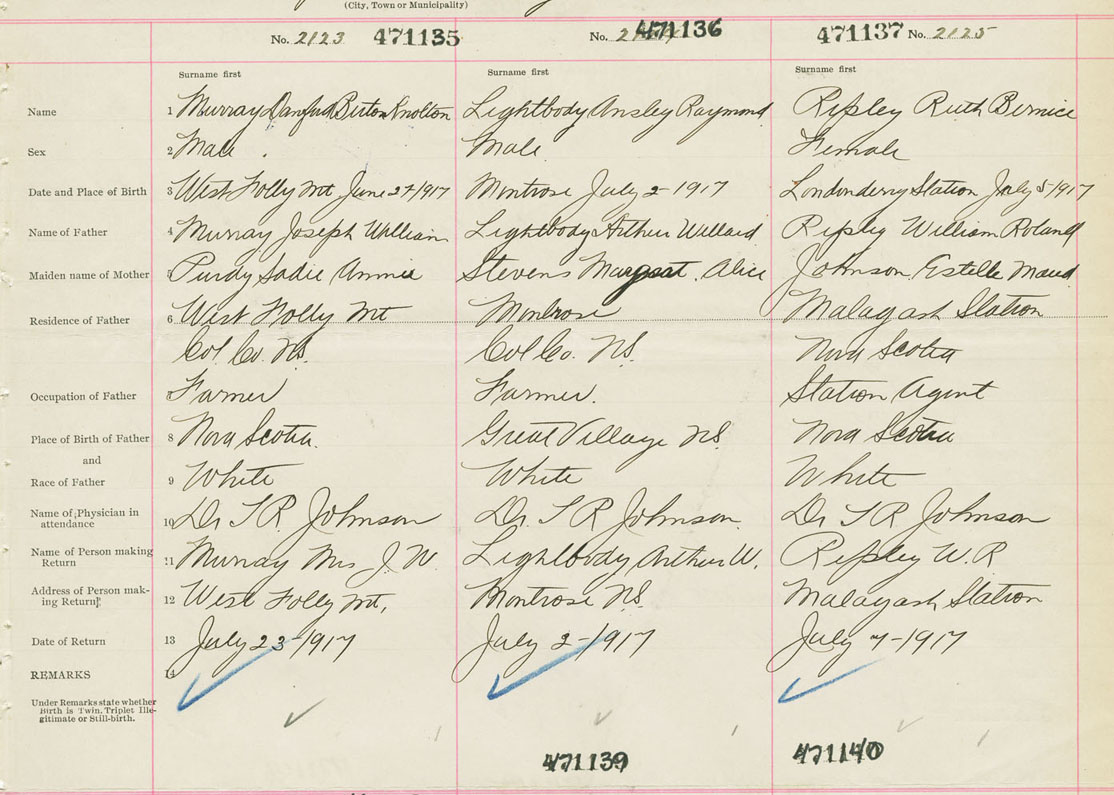 (City, Town or Municipality)
No. 2123 471135 No. 471136 471137 No. 2125
Surname first Surname first Surname first
Name 1 Murray Danford Birton Knolton Lightbody Ansley Raymond Ripley Ruth Bernice
Sex 2 Male Male Female
Date and Place of Birth 3 West Folly Mt June 27/1917 Montrose July 2-1917 Londonderry Station July 5/1917
Name of Father 4 Murray Joseph William Lightbody Arthur Willard Ripley William Roland
Maiden name of Mother 5 Purdy Sadie Annie Stevens Margaret Alice Johnson, Estelle Maud
Residence of Father 6 West Folly Mt Montrose Malagash Station
Col. Co. N.S. Col Co. N.S. Nova Scotia
Occupation of Father 7 Farmer Farmer. Station Agent
Place of Birth of Father 8 Nova Scotia. Great Village N.S. Nova Scotia
and
Race of Father 9 White White White
Name of Physician in
attendance 10 Dr T R Johnson Dr. T R Johnson Dr T R Johnson
Name of Person making
Return 11 Murray Mrs J. W. Lightbody, Arthur W. Ripley W. R
Address of Person mak-
ing Return 12 West Folly Mt. Montrose N.S. Malagash Station
Date of Return 13 July 23-1917 July 2-1917 July 7-1917
REMARKS 14
Under Remarks state whether
Birth is Twin. Triplet Ille-
gitimate or Still-birth.
471139 471140